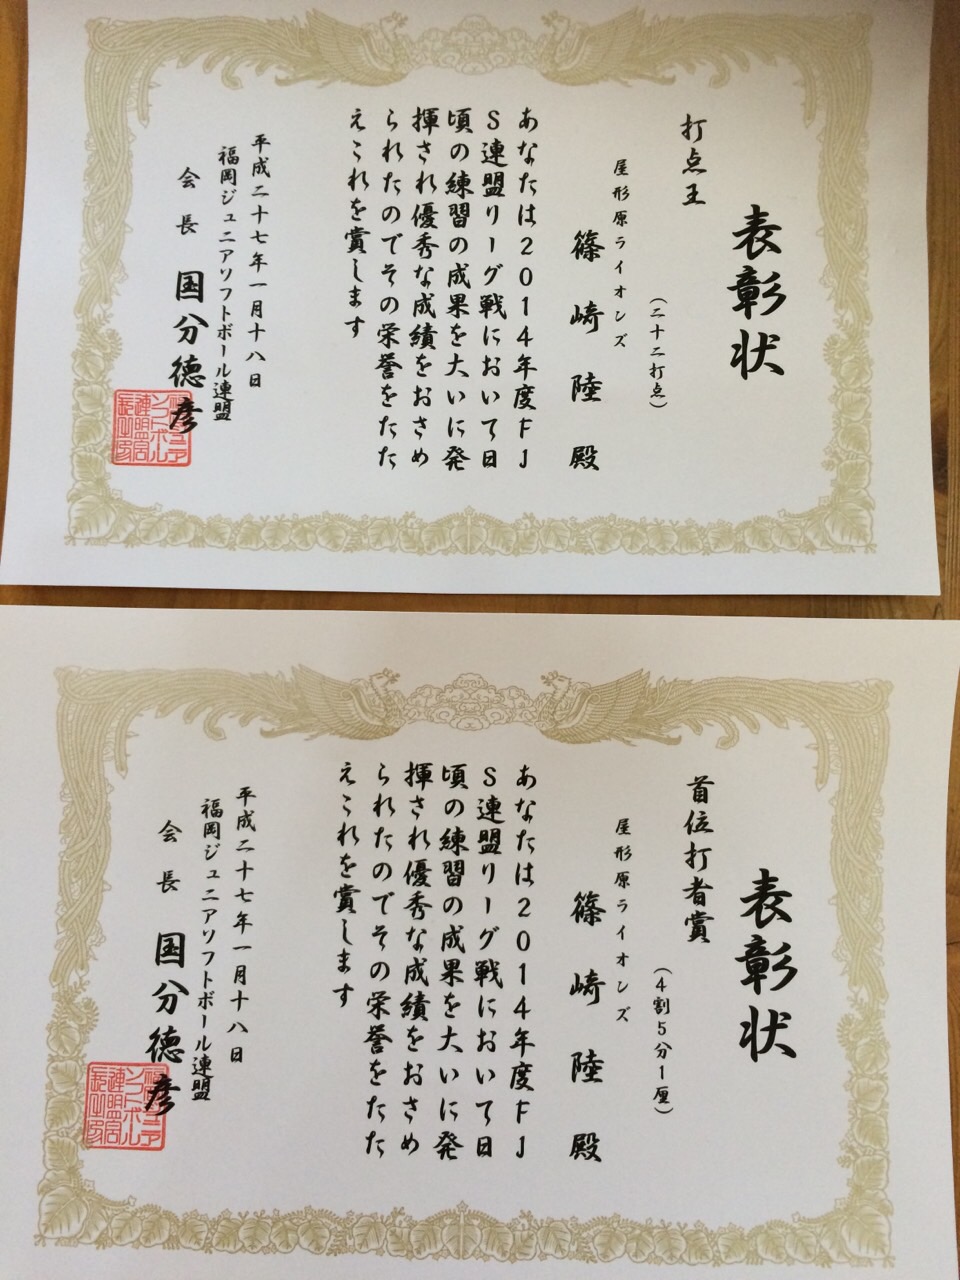 表彰状
打点王
（二十二打点）
屋形原ライオンズ
篠崎陸殿
あなたは2014年度FJ
S連盟リーグ戦において日
頃の練習の成果を大いに発
揮され優秀な成績をおさめ
られたのでその栄誉をたた
えこれを賞します
平成二十七年一月十八日
福岡ジュニアソフトボール連盟
会長 国分徳彦
表彰状
首位打者賞
（4割5分1厘）
屋形原ライオンズ
篠崎陸殿
あなたは2014年度FJ
S連盟リーグ戦において日
頃の練習の成果を大いに発
揮され優秀な成績をおさめ
られたのでその栄誉をたた
えこれを賞します
平成二十七年一月十八日
福岡ジュニアソフトボール連盟
会長 国分徳彦